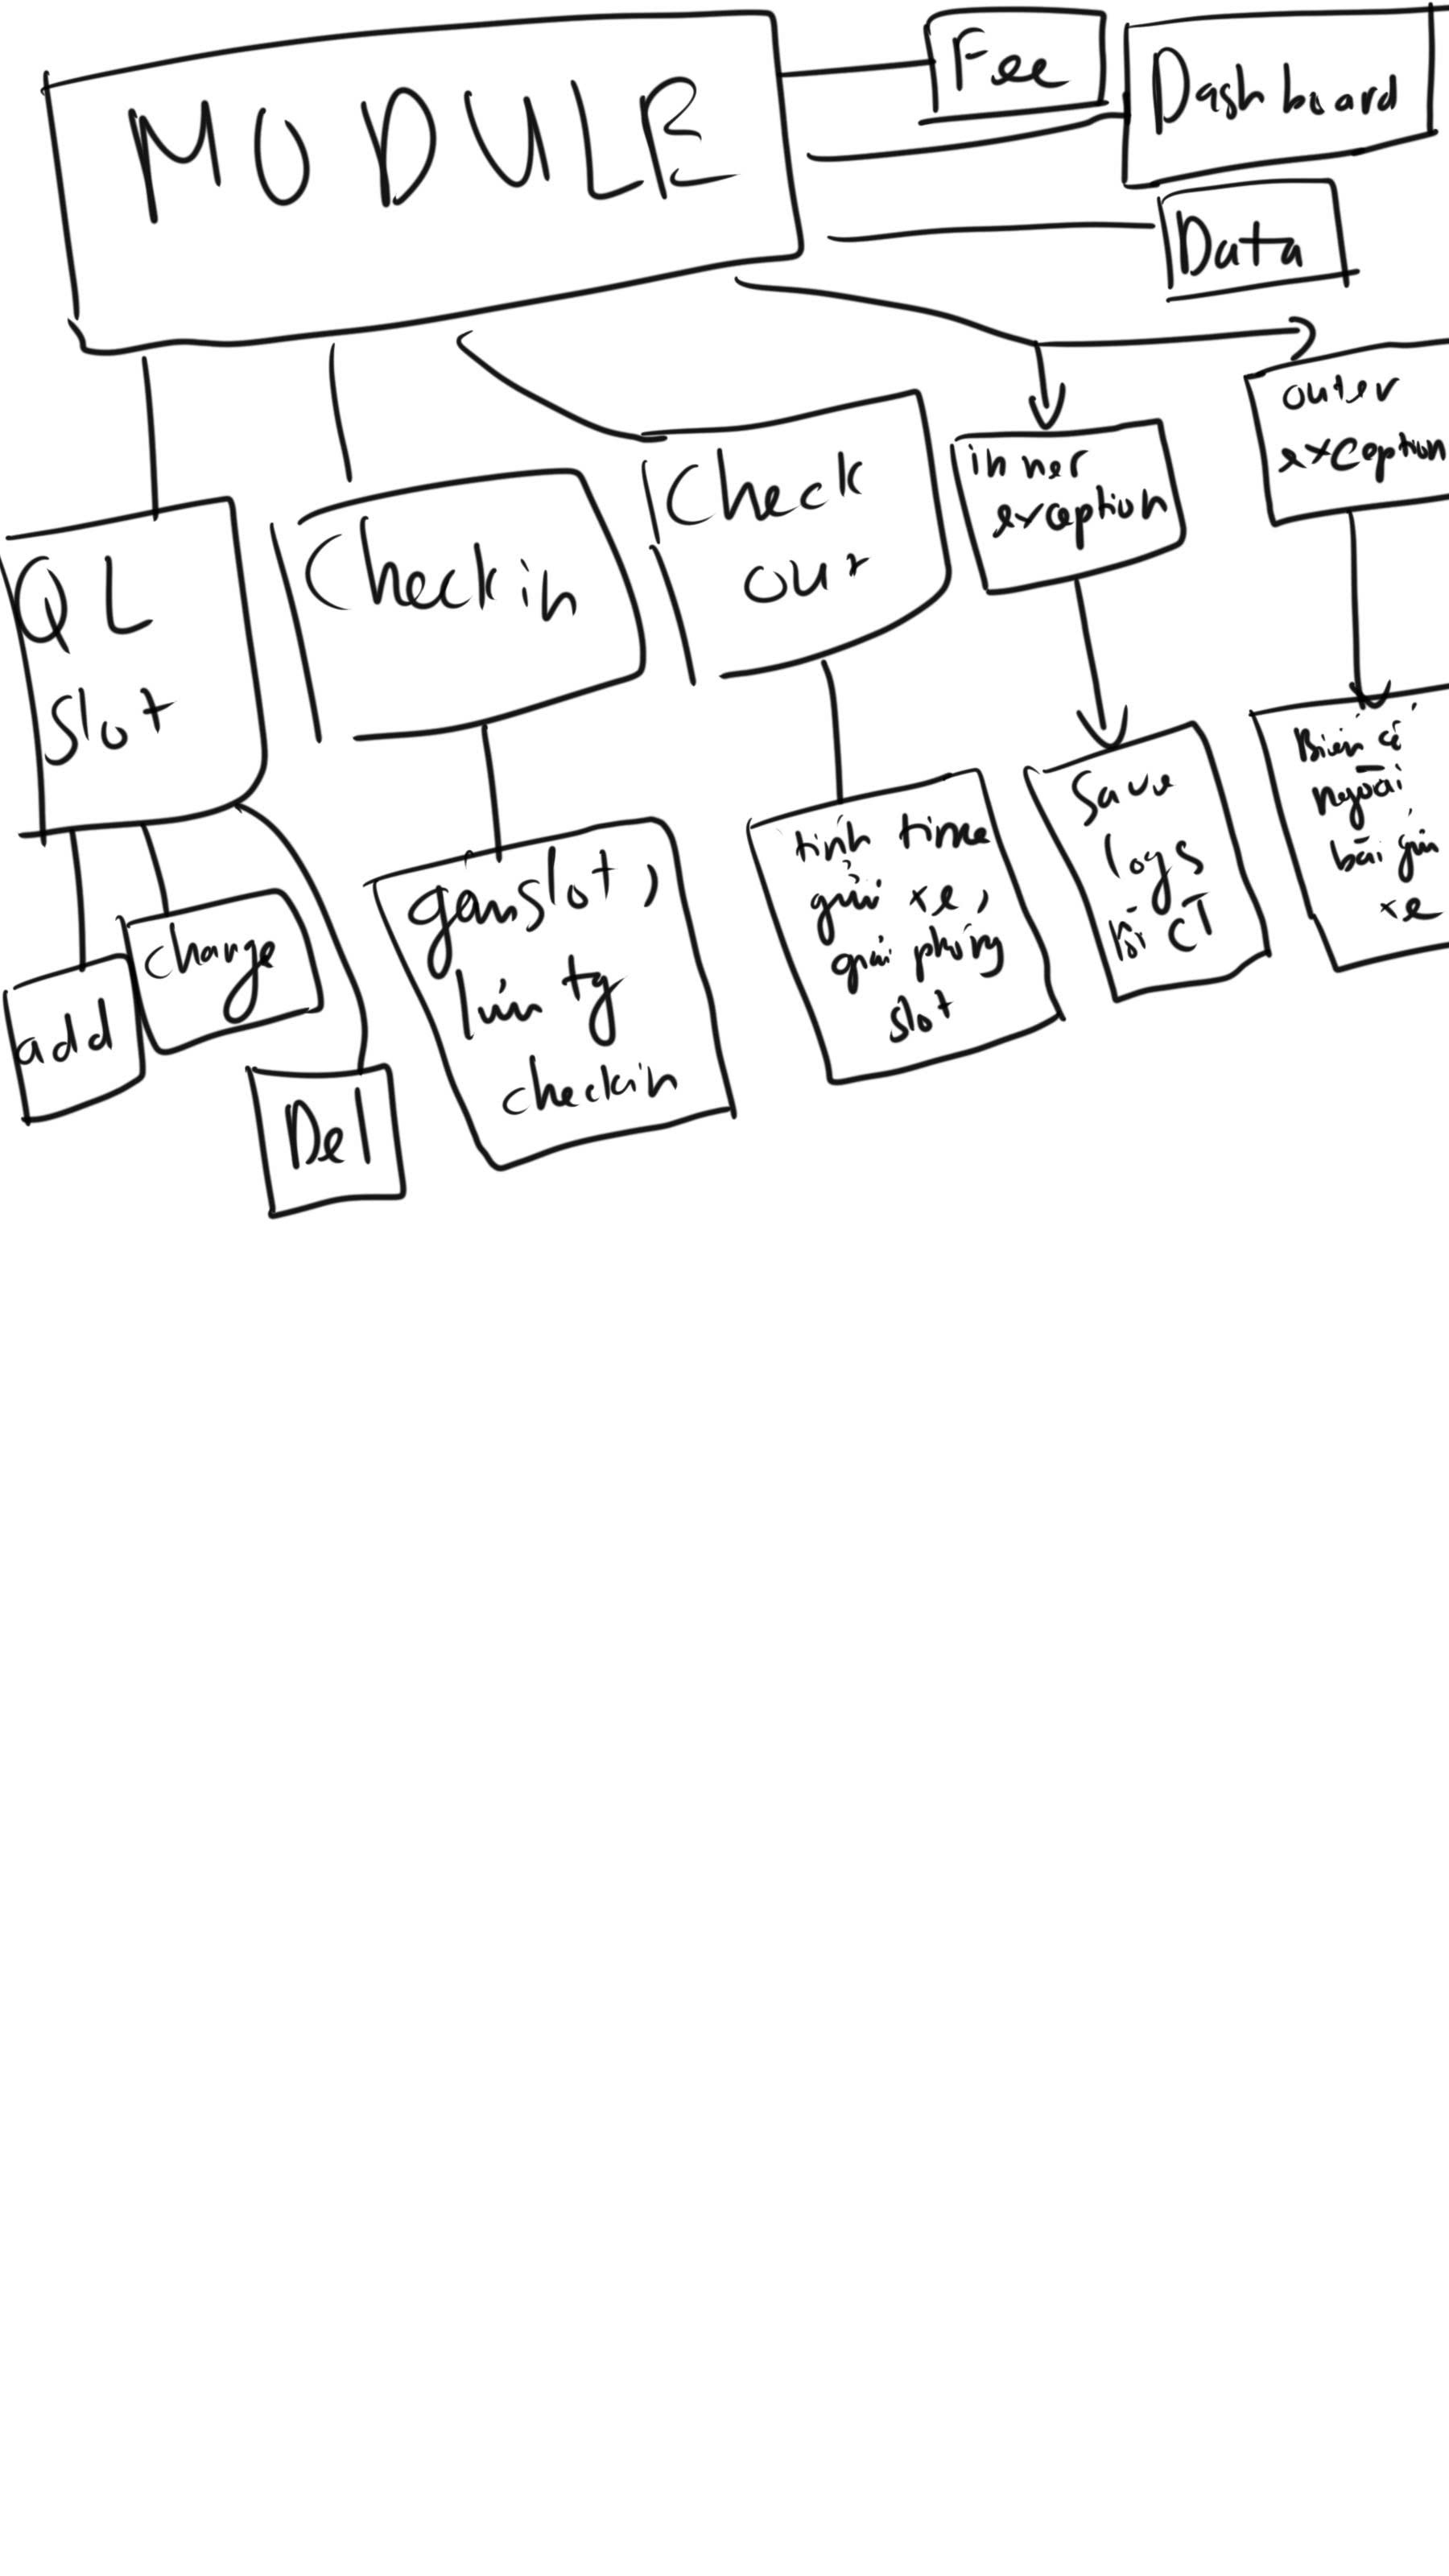 MODULE
Fee
Dashboard
Data
QL
Slot
Checkin
Check
out
inner
exception
outer
exception
add
change
Del
gán slot,
lưu tg
checkin
tính time
gửi xe,
giải phóng
slot
Save
logs
bị CT
Biến cố
ngoài
bãi giữ
xe